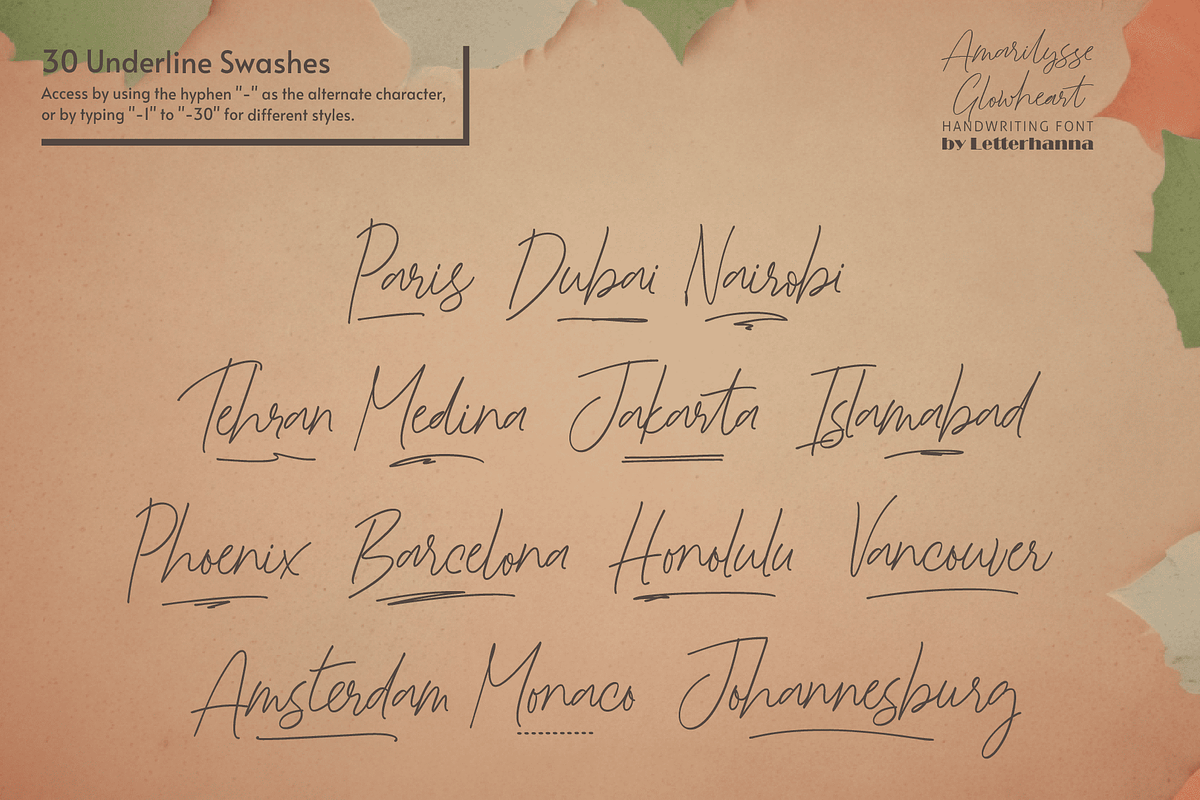 30 Underline Swashes
Access by using the hyphen "-" as the alternate character,
or by typing "-1" to "-30" for different styles.
Amarilysse
Glowheart
HANDWRITING FONT
by Letterhanna
Paris Dubai Nairobi
Tehran Medina Jakarta Islamabad
Phoenix Barcelona Honolulu Vancouver
Amsterdam Monaco Johannesburg